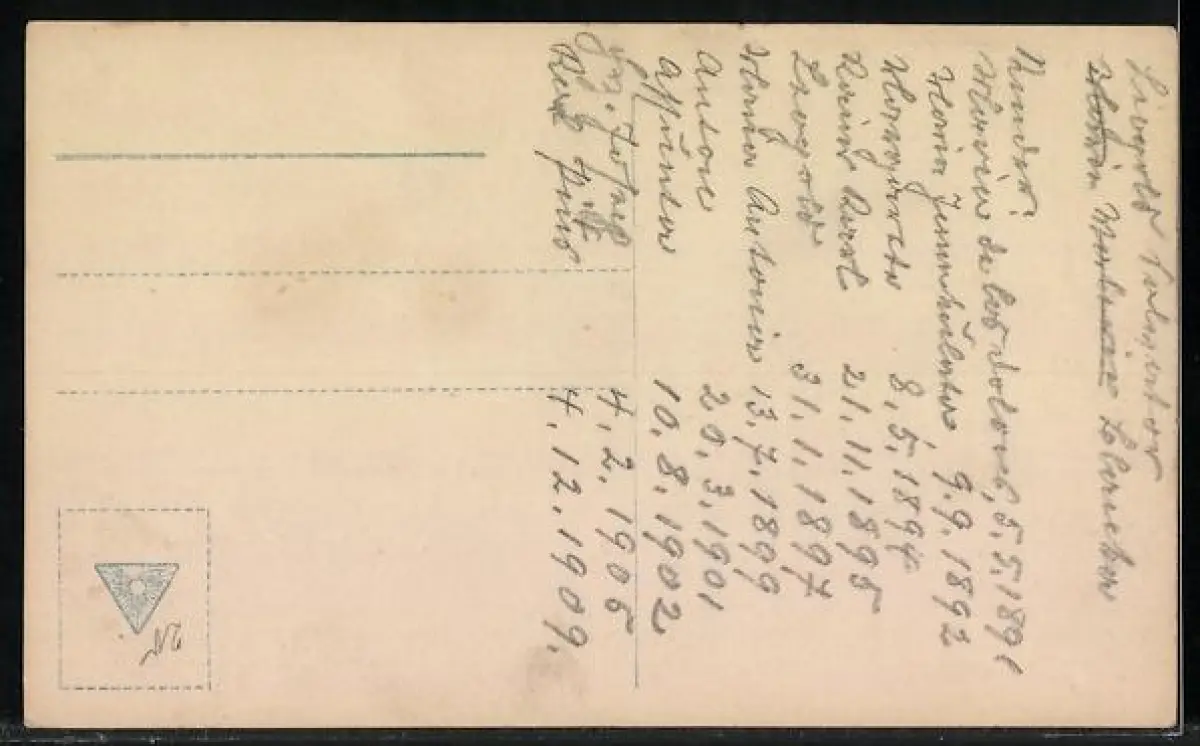 Leopold Salvator
Kinder:
Maria de los dolores, 5.5.1891
Maria Immakulata, 9.9.1892
Margareta 8.5.1894
Rainer Karl 21.11.1895
Leopold 31.1.1897
Maria Antonia 13.7.1899
Anton 20.3.1901
Assunta 10.8.1902
Frz. Josef 4.2.1905
Karl Pius 4.12.1909.